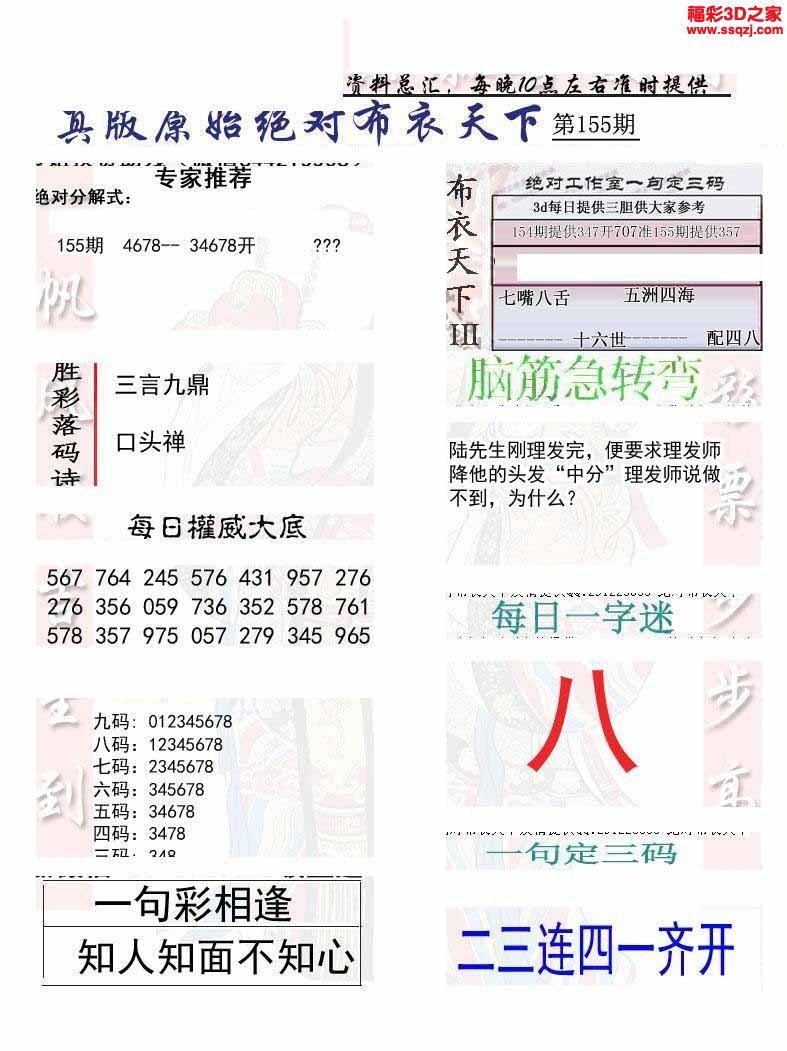 福彩3D之家
www.ssqzj.com
资料总汇，每晚10点左右准时提供
真版原始绝对布衣天下 第155期
专家推荐
绝对分解式：
155期 4678-- 34678开 ???
帆
胜彩落码诗
三言九鼎
口头禅
每日權威大底
567 764 245 576 431 957 276
276 356 059 736 352 578 761
578 357 975 057 279 345 965
九码: 012345678
八码: 12345678
七码: 2345678
六码: 345678
五码: 34678
四码: 3478
三码: 348
到
一句彩相逢
知人知面不知心
布衣天下III
绝对工作室一句定三码
3d每日提供三胆供大家参考
154期提供347开707准155期提供357
七嘴八舌 五洲四海
------- 十六世------- 配四八
脑筋急转弯
陆先生刚理发完，便要求理发师
降他的头发“中分”理发师说做
不到，为什么？
彩
票
每日一字迷
八
步
高
一句定三码
二三连四一齐开